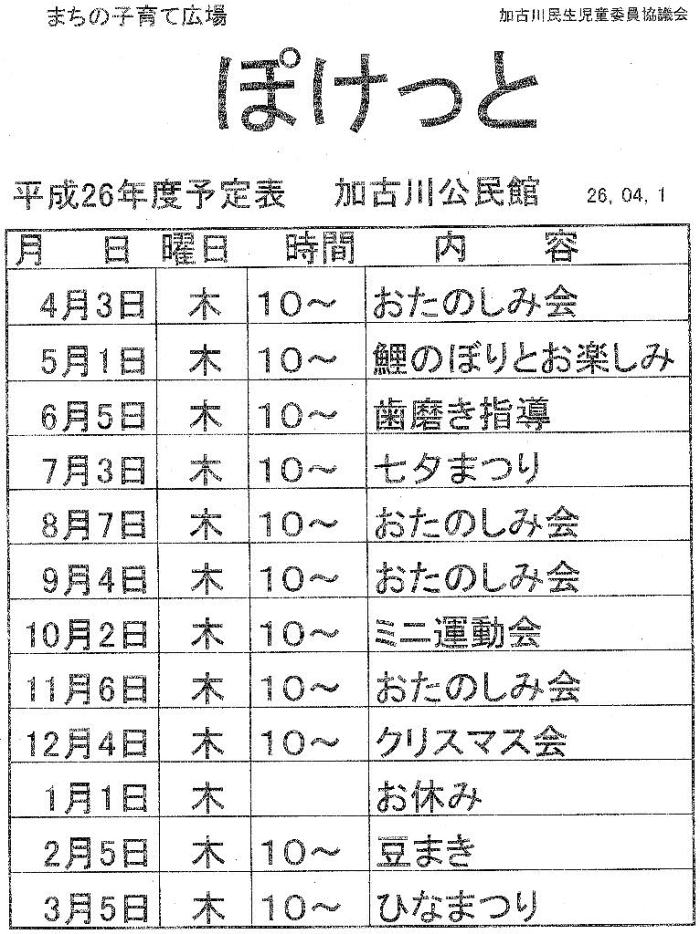 まちの子育て広場
加古川民生児童委員協議会
ぽけっと
平成26年度予定表 加古川公民館 26, 04, 1
月 日 曜日 時間 内 容
4月3日 木 10～ おたのしみ会
5月1日 木 10～ 鯉のぼりとお楽しみ
6月5日 木 10～ 歯磨き指導
7月3日 木 10～ 七夕まつり
8月7日 木 10～ おたのしみ会
9月4日 木 10～ おたのしみ会
10月2日 木 10～ ミニ運動会
11月6日 木 10～ おたのしみ会
12月4日 木 10～ クリスマス会
1月1日 木 お休み
2月5日 木 10～ 豆まき
3月5日 木 10～ ひなまつり